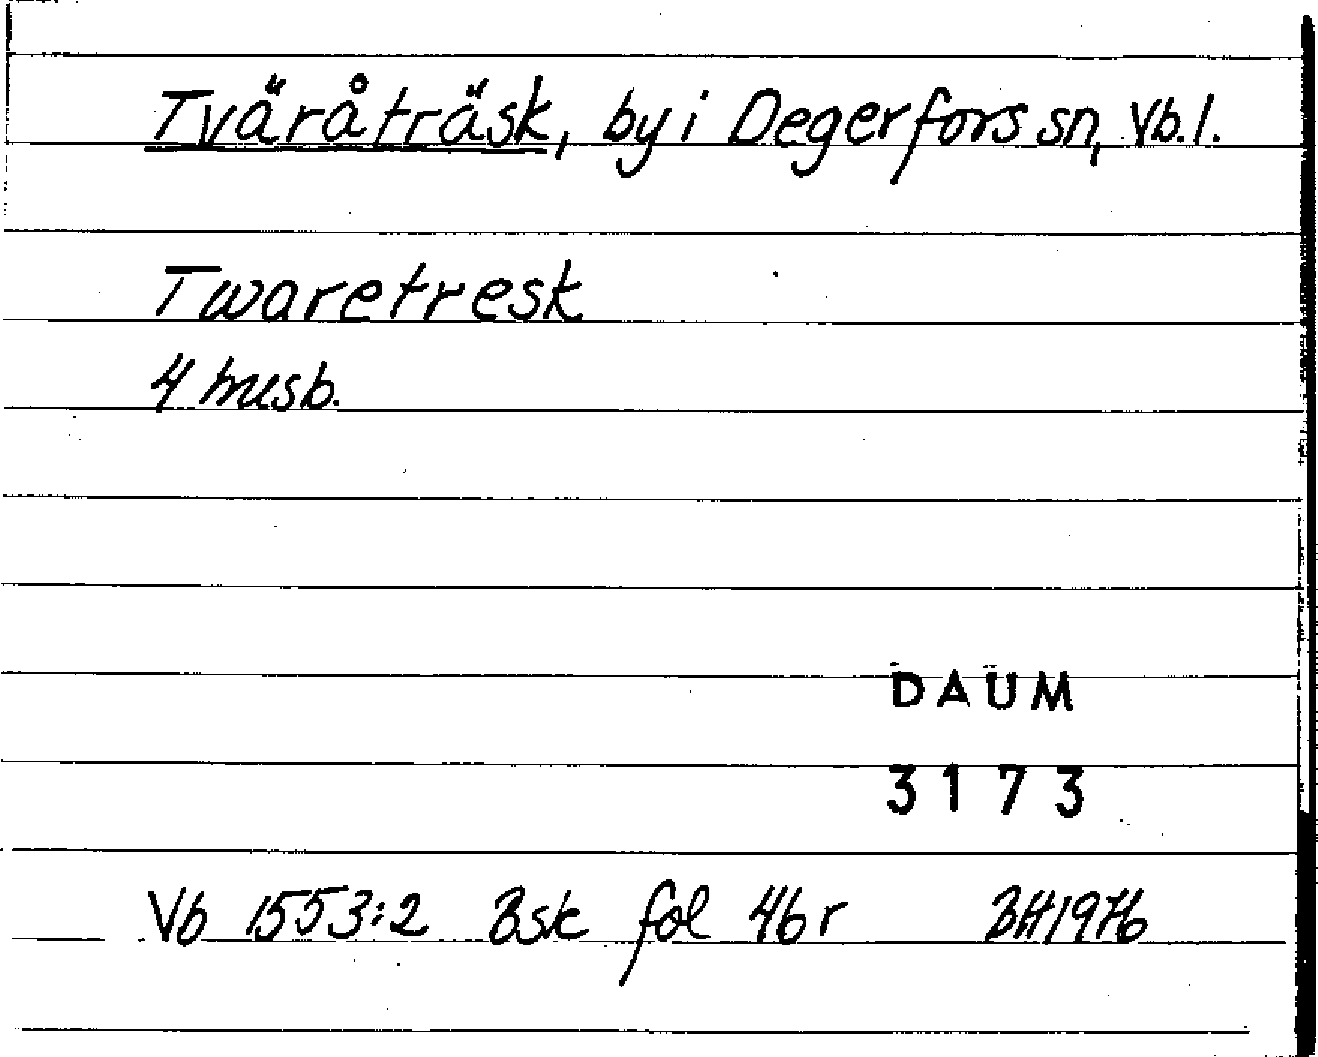 Tväråträsk, by i Degerfors sn, Vb. l.
Twaretresk
4 husb.
DAUM
3173
Vb 1553:2 Bsk fol 46 r BH1976